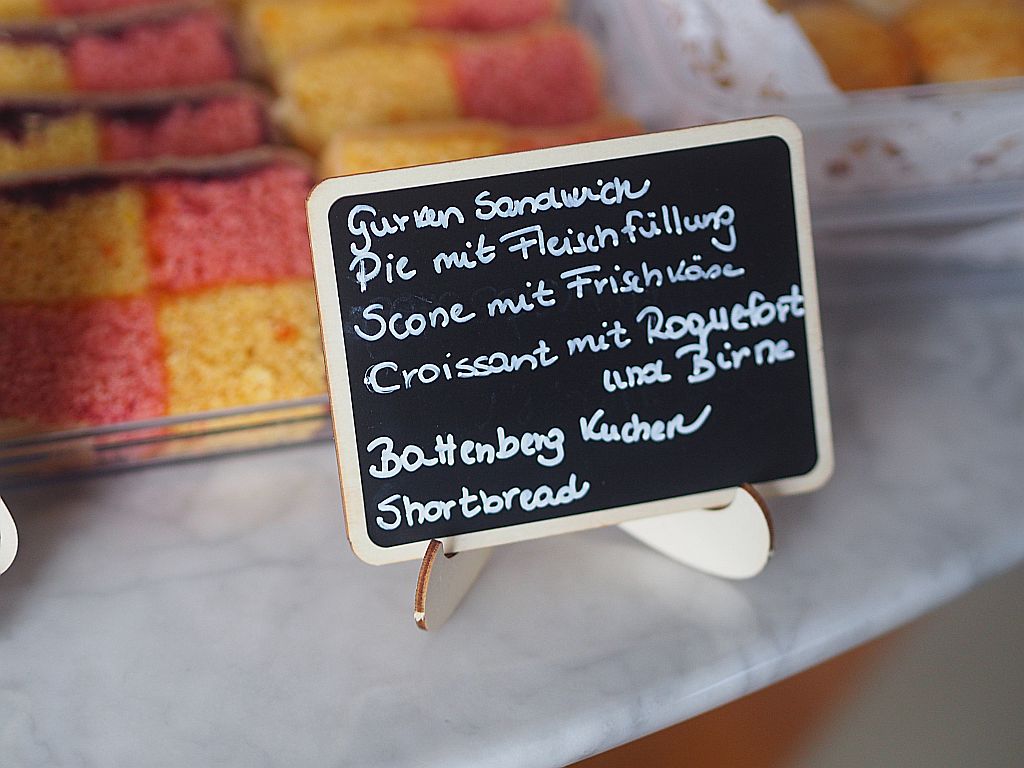 Gurken Sandwich
Pie mit Fleischfüllung
Scone mit Frischkäse
Croissant mit Roquefort
und Birne
Battenberg Kuchen
Shortbread